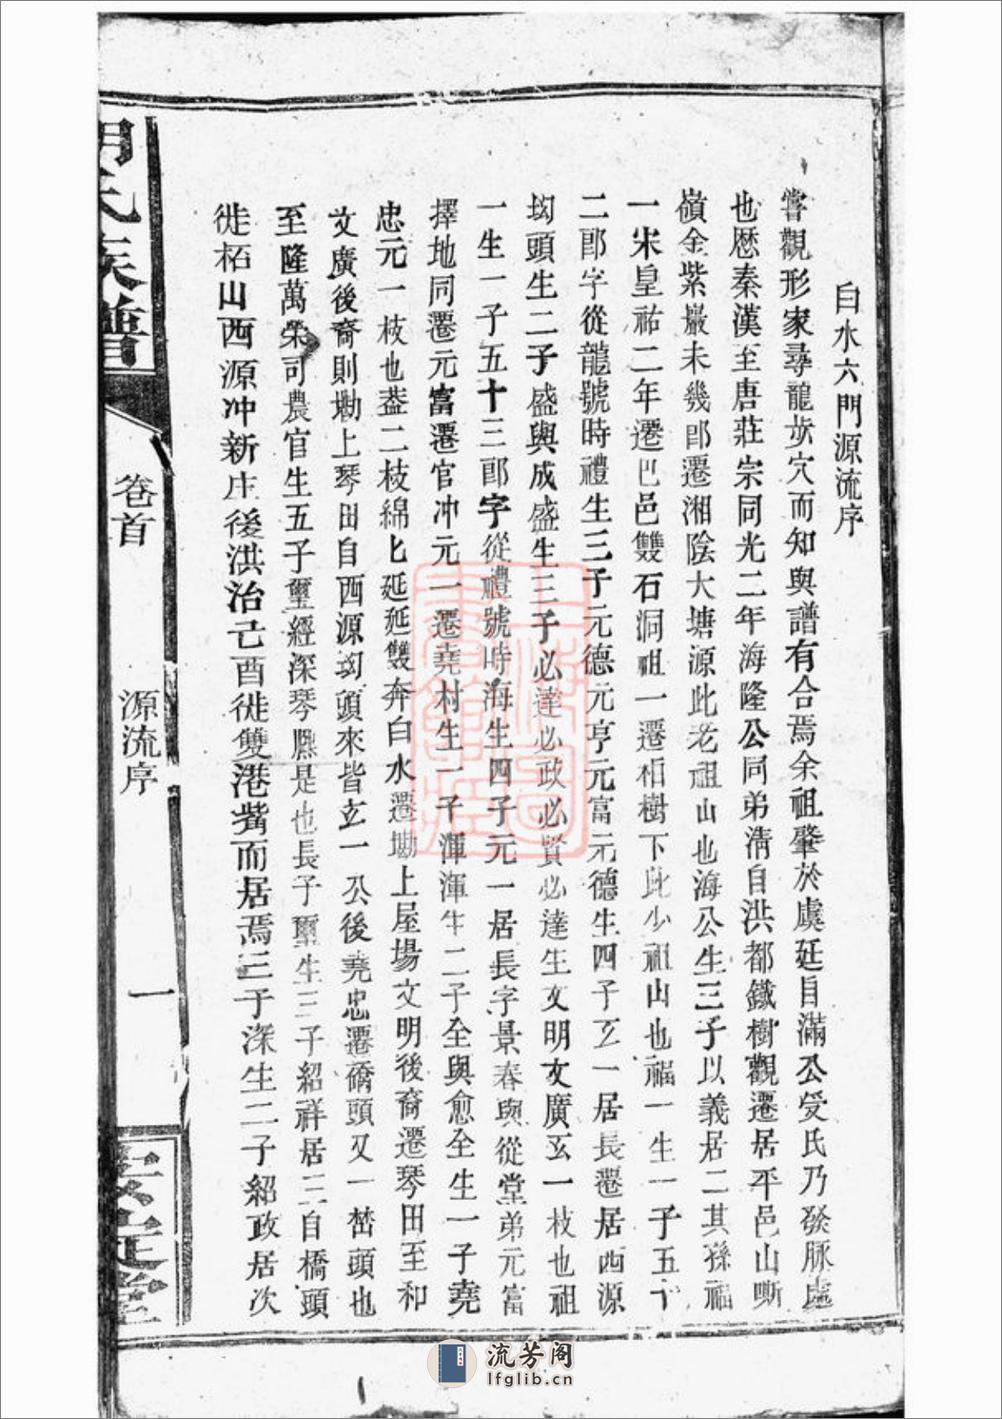 白水六門源流序
嘗觀形家尋龍步穴而知與譜有合焉余祖肇於虞廷自滿公受氏乃發脉處
也歷秦漢至唐莊宗同光二年海隆公同弟清自洪都鐵樹觀遷居平邑山嘶
嶺金紫巖未幾即遷湘陰大塘源此老祖山也海公生三子以義居二其孫福
一宋皇祐二年遷巴邑雙石洞祖一遷栢樹下此少祖山也福一生一子五十
二郎字從龍號時禮生三子元德元亨元富元德生四子玄一居長遷居西源
㘭頭生二子盛與成盛生三子必達必政必賢必達生文明文廣玄一枝也祖
一生一子五十三郎字從禮號時海生四子元一居長字景春與從堂弟元富
擇地同遷元富遷官冲元一遷堯村生一子渾渾生二子全與愈全生一子堯
忠元一枝也葢二枝綿匕延延雙奔白水遷塝上屋場文明後裔遷琴田至和
文廣後裔則塝上琴田自西源㘭頭來皆玄一公後堯忠遷礄頭又一嶅頭也
至隆萬榮司農官生五子璽經深琴熙是也長子璽生三子紹祥居三自橋頭
徙栢山西源冲新庄後洪治己酉徙雙港觜而居焉三子深生二子紹政居次
胡氏族譜
卷首
源流序
一
安定堂
上海圖
書館藏
流芳阁
lfglib.cn